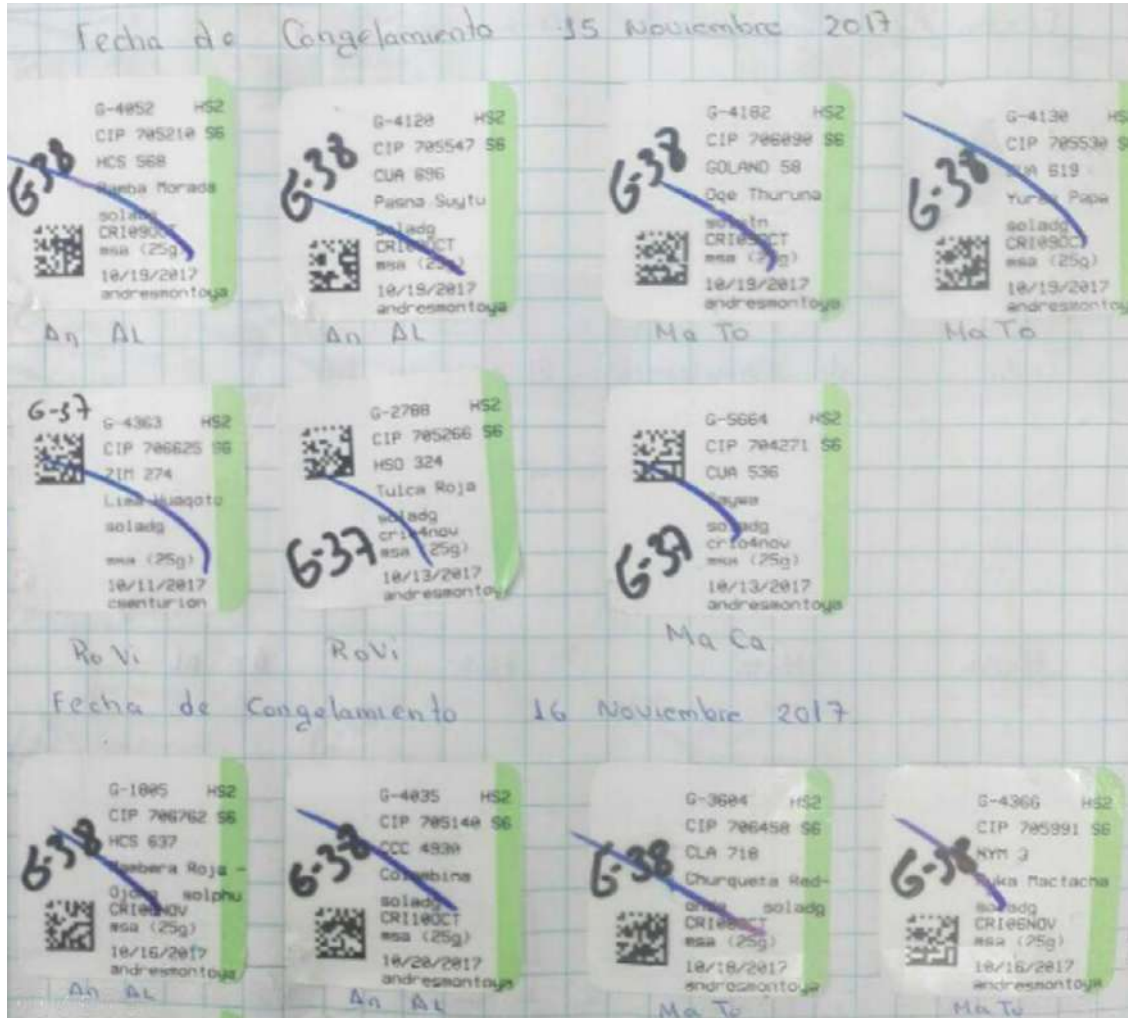 Fecha de Congelamiento 15 Noviembre 2017
G-4052 HS2
CIP 705210 S6
HCS 568
Morada
soladg
CRI09OCT
msa (25g)
10/19/2017
andresmontoya
G-38
An AL
G-4120 HS2
CIP 705547 S6
CUA 696
Pasna Suytu
soladg
CRI09OCT
msa (25g)
10/19/2017
andresmontoya
G-38
An AL
G-4182 HS2
CIP 706090 S6
GOLAND 58
Oqe Thuruna
CRI09OCT
msa (25g)
10/19/2017
andresmontoya
G-38
Ma To
G-4130 HS
CIP 705530 S6
CUA 619
Papa
soladg
CRI09OCT
msa (25g)
10/19/2017
andresmontoy
G-38
Ma To
G-37
G-4363 HS2
CIP 706625 S6
ZIM 274
Lima Huaqoto
soladg
msa (25g)
10/11/2017
csenturion
Ro Vi
G-2788 HS2
CIP 705266 S6
HSO 324
Tulca Roja
soladg
crio4nov
msa (25g)
10/13/2017
andresmontoy
G-37
Ro Vi
G-5664 HS2
CIP 704271 S6
CUA 536
soladg
crio4nov
msa (25g)
10/13/2017
andresmontoya
G-37
Ma Ca
Fecha de Congelamiento 16 Noviembre 2017
G-1805 HS2
CIP 706762 S6
HCS 637
Roja -
solphu
CRI06NOV
msa (25g)
10/16/2017
andresmontoya
G-38
An AL
G-4035 HS2
CIP 705140 S6
CCC 4930
Colombina
soladg
CRI10OCT
msa (25g)
10/20/2017
andresmontoya
G-38
An AL
G-3604 HS2
CIP 706458 S6
CLA 718
Churqueta Red-
soladg
msa (25g)
10/18/2017
andresmontoya
G-38
Ma To
G-4366 HS2
CIP 705991 S6
KYM 3
Puka Mactacha
soladg
CRI06NOV
msa (25g)
10/16/2017
andresmontoya
G-38
Ma To